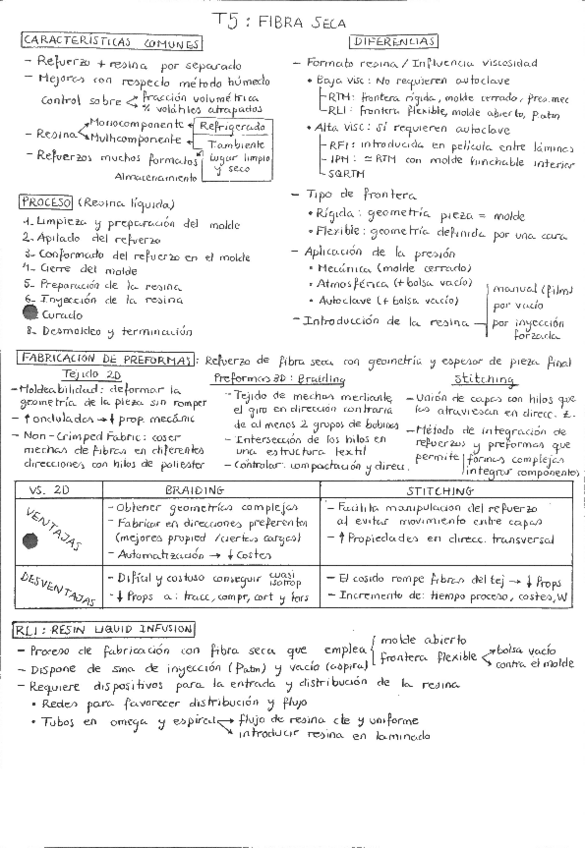 T5: FIBRA SECA
CARACTERÍSTICAS COMUNES
- Refuerzo + resina por separado
- Mejoras con respecto método húmedo
Control sobre fracción volumétrica
% volátiles atrapados
- Resina Monocomponente Refrigerado
Multicomponente Tambiente
- Refuerzos muchos formatos lugar limpio y seco
Almacenamiento
PROCESO (Resina líquida)
1- Limpieza y preparación del molde
2- Apilado del refuerzo
3- Conformado del refuerzo en el molde
4- Cierre del molde
5- Preparación de la resina
6- Inyección de la resina
Curado
8- Desmoldeo y terminación
DIFERENCIAS
- Formato resina / Influencia viscosidad
• Baja visc: No requieren autoclave
- RTM: frontera rígida, molde cerrado, pres.mec
- RLI: frontera flexible, molde abierto, Patm
• Alta visc: Sí requieren autoclave
- RFI: introducida en película entre láminas
- IPM: ≃ RTM con molde hinchable interior
- SQRTM
- Tipo de frontera
• Rígida: geometría pieza = molde
• Flexible: geometría definida por una cara
- Aplicación de la presión
• Mecánica (molde cerrado)
• Atmosférica (+ bolsa vacío)
• Autoclave (+ bolsa vacío)
- Introducción de la resina
manual (film)
por vacío
por inyección forzada
FABRICACIÓN DE PREFORMAS: Refuerzo de fibra seca con geometría y espesor de pieza final
Tejido 2D
- Moldeabilidad: deformar la
geometría de la pieza sin romper
- ↑ ondulados → ↓ prop. mecánic
- Non-Crimped Fabric: coser
mechas de fibras en diferentes
direcciones con hilos de poliester
Preformas 3D: Braiding
- Tejido de mechas mediante
el giro en dirección contraria
de al menos 2 grupos de bobinas
- Intersección de los hilos en
una estructura textil
- Controlar compactación y direcc.
Stitching
- Unión de capas con hilos que
las atraviesan en direcc. z.
- Método de integración de
refuerzos y preformas que
permite formas complejas
integrar componentes
VS. 2D
BRAIDING
STITCHING
VENTAJAS
- Obtener geometrías complejas
- Fabricar en direcciones preferentes
(mejores propied /ciertas cargas)
- Automatización → ↓ Costes
- Facilita manipulación del refuerzo
al evitar movimiento entre capas
- ↑ Propiedades en direcc. transversal
DESVENTAJAS
- Difícil y costoso conseguir cuasi isotrop
- ↓ Props a: tracc, compr, cort y tors
- El cosido rompe fibras del tej → ↓ Props
- Incremento de: tiempo proceso, costes, W
RLI: RESIN LIQUID INFUSION
- Proceso de fabricación con fibra seca que emplea molde abierto
frontera flexible bolsa vacío
contra el molde
- Dispone de sma de inyección (Patm) y vacío (aspira)
- Requiere dispositivos para la entrada y distribución de la resina
• Redes para favorecer distribución y flujo
• Tubos en omega y espiral flujo de resina cte y uniforme
introducir resina en laminado